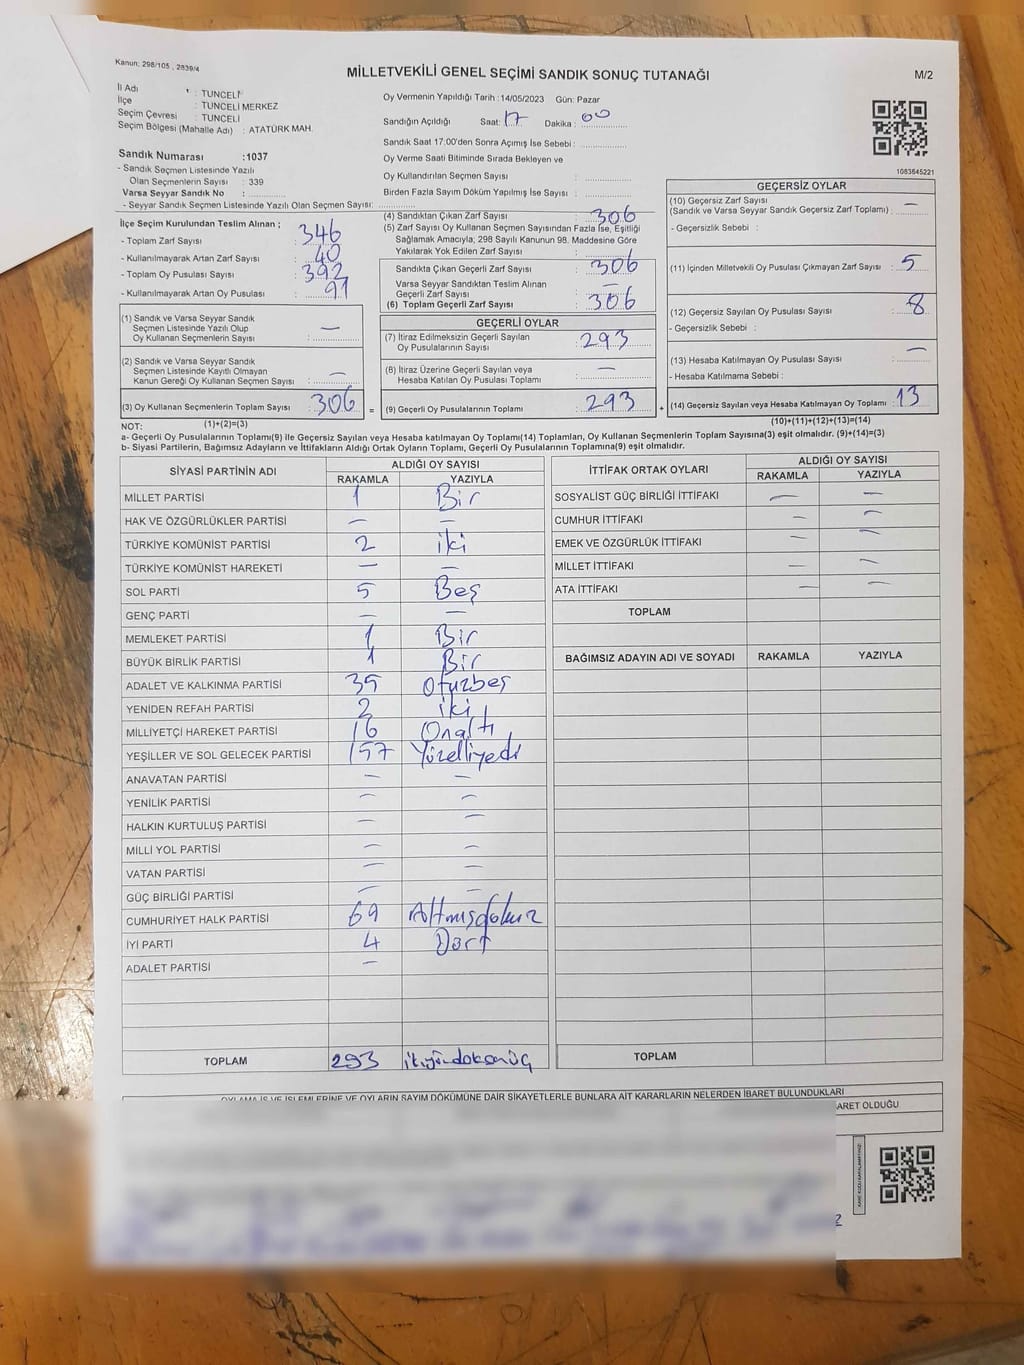 Kanun: 298/105 , 2839/4
MİLLETVEKİLİ GENEL SEÇİMİ SANDIK SONUÇ TUTANAĞI
M/2
İl Adı : TUNCELİ
İlçe : TUNCELİ MERKEZ
Seçim Çevresi : TUNCELİ
Seçim Bölgesi (Mahalle Adı) : ATATÜRK MAH.
Sandık Numarası :1037
- Sandık Seçmen Listesinde Yazılı
Olan Seçmenlerin Sayısı : 339
Varsa Seyyar Sandık No :
- Seyyar Sandık Seçmen Listesinde Yazılı Olan Seçmen Sayısı:
Oy Vermenin Yapıldığı Tarih : 14/05/2023 Gün: Pazar
Sandığın Açıldığı Saat: 17 Dakika : 00
Sandık Saat 17:00'den Sonra Açımış İse Sebebi :
Oy Verme Saati Bitiminde Sırada Bekleyen ve
Oy Kullandırılan Seçmen Sayısı :
Birden Fazla Sayım Döküm Yapılmış İse Sayısı :
1083645221
İlçe Seçim Kurulundan Teslim Alınan ;
- Toplam Zarf Sayısı : 346
- Kullanılmayarak Artan Zarf Sayısı : 40
- Toplam Oy Pusulası Sayısı : 392
- Kullanılmayarak Artan Oy Pusulası : 91
(1) Sandık ve Varsa Seyyar Sandık
Seçmen Listesinde Yazılı Olup
Oy Kullanan Seçmenlerin Sayısı : —
(2) Sandık ve Varsa Seyyar Sandık
Seçmen Listesinde Kayıtlı Olmayan
Kanun Gereği Oy Kullanan Seçmen Sayısı : —
(3) Oy Kullanan Seçmenlerin Toplam Sayısı : 306
(1)+(2)=(3)
(4) Sandıktan Çıkan Zarf Sayısı : 306
(5) Zarf Sayısı Oy Kullanan Seçmen Sayısından Fazla İse, Eşitliği
Sağlamak Amacıyla; 298 Sayılı Kanunun 98. Maddesine Göre
Yakılarak Yok Edilen Zarf Sayısı :
Sandıkta Çıkan Geçerli Zarf Sayısı : 306
Varsa Seyyar Sandıktan Teslim Alınan
Geçerli Zarf Sayısı : —
(6) Toplam Geçerli Zarf Sayısı : 306
GEÇERLİ OYLAR
(7) İtiraz Edilmeksizin Geçerli Sayılan
Oy Pusulalarının Sayısı : 293
(8) İtiraz Üzerine Geçerli Sayılan veya
Hesaba Katılan Oy Pusulası Toplamı : —
= (9) Geçerli Oy Pusulalarının Toplamı : 293 +
GEÇERSİZ OYLAR
(10) Geçersiz Zarf Sayısı
(Sandık ve Varsa Seyyar Sandık Geçersiz Zarf Toplamı) : —
- Geçersizlik Sebebi :
(11) İçinden Milletvekili Oy Pusulası Çıkmayan Zarf Sayısı : 5
(12) Geçersiz Sayılan Oy Pusulası Sayısı : 8
- Geçersizlik Sebebi :
(13) Hesaba Katılmayan Oy Pusulası Sayısı : —
- Hesaba Katılmama Sebebi :
(14) Geçersiz Sayılan veya Hesaba Katılmayan Oy Toplamı : 13
(10)+(11)+(12)+(13)=(14)
NOT:
a- Geçerli Oy Pusulalarının Toplamı(9) ile Geçersiz Sayılan veya Hesaba katılmayan Oy Toplamı(14) Toplamları, Oy Kullanan Seçmenlerin Toplam Sayısına(3) eşit olmalıdır. (9)+(14)=(3)
b- Siyasi Partilerin, Bağımsız Adayların ve İttifakların Aldığı Ortak Oyların Toplamı, Geçerli Oy Pusulalarının Toplamına(9) eşit olmalıdır.
SİYASİ PARTİNİN ADI ALDIĞI OY SAYISI
RAKAMLA YAZIYLA
MİLLET PARTİSİ 1 Bir
HAK VE ÖZGÜRLÜKLER PARTİSİ — —
TÜRKİYE KOMÜNİST PARTİSİ 2 iki
TÜRKİYE KOMÜNİST HAREKETİ — —
SOL PARTİ 5 Beş
GENÇ PARTİ — —
MEMLEKET PARTİSİ 1 Bir
BÜYÜK BİRLİK PARTİSİ 1 Bir
ADALET VE KALKINMA PARTİSİ 35 Otuzbeş
YENİDEN REFAH PARTİSİ 2 iki
MİLLİYETÇİ HAREKET PARTİSİ 16 Onaltı
YEŞİLLER VE SOL GELECEK PARTİSİ 157 Yüzelliyedi
ANAVATAN PARTİSİ — —
YENİLİK PARTİSİ — —
HALKIN KURTULUŞ PARTİSİ — —
MİLLİ YOL PARTİSİ — —
VATAN PARTİSİ — —
GÜÇ BİRLİĞİ PARTİSİ — —
CUMHURİYET HALK PARTİSİ 69 Altmışdokuz
İYİ PARTİ 4 Dört
ADALET PARTİSİ —
TOPLAM 293 ikiyüzdoksanüç
İTTİFAK ORTAK OYLARI ALDIĞI OY SAYISI
RAKAMLA YAZIYLA
SOSYALİST GÜÇ BİRLİĞİ İTTİFAKI — —
CUMHUR İTTİFAKI — —
EMEK VE ÖZGÜRLÜK İTTİFAKI — —
MİLLET İTTİFAKI — —
ATA İTTİFAKI — —
TOPLAM
BAĞIMSIZ ADAYIN ADI VE SOYADI RAKAMLA YAZIYLA
TOPLAM
OYLAMA İŞ VE İŞLEMLERİNE VE OYLARIN SAYIM DÖKÜMÜNE DAİR ŞİKAYETLERLE BUNLARA AİT KARARLARIN NELERDEN İBARET BULUNDUKLARI
ARET OLDUĞU